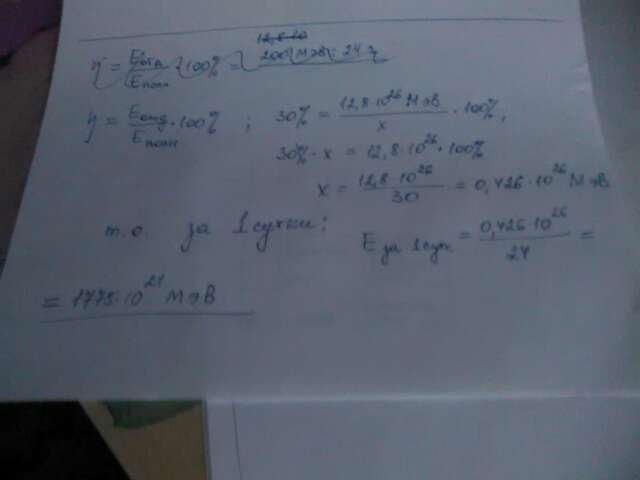 12,8·10
η = Eотд/Eполн · 100% = 200 МэВ · 24 ч
η = Eотд/Eполн · 100% ; 30% = 12,8·10²⁶ МэВ/x · 100%,
30% · x = 12,8·10²⁶ · 100%
x = 12,8·10²⁶/30 = 0,426·10²⁶ МэВ
т.о. за 1 сутки: E за 1 сут = 0,426·10²⁶/24 =
= 1775·10²¹ МэВ